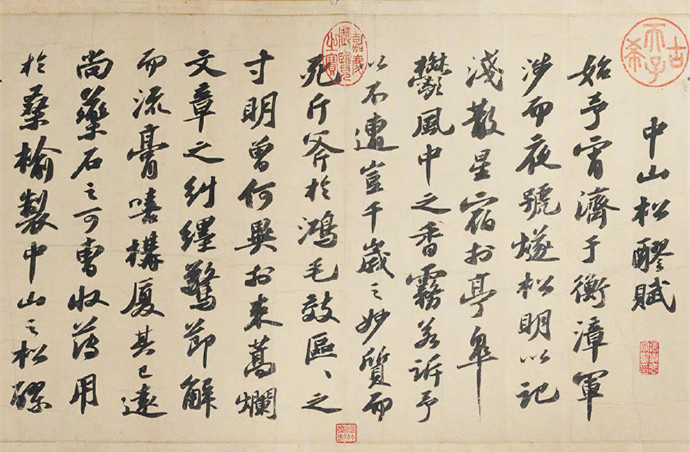 古希天子
中山松醪賦
始予宵濟于衡漳軍
涉而夜號燧松明以記
淺散星宿於亭皐
鬱風中之香霧若訴予
以不遭豈千歲之妙質而
嘉慶御覽之寶
死斤斧於鴻毛效區、之
寸明曾何異於束蒿爛
文章之糾纆驚節解
而流膏嘻構廈其已遠
尚藥石之可曹收薄用
於桑榆製中山之松醪